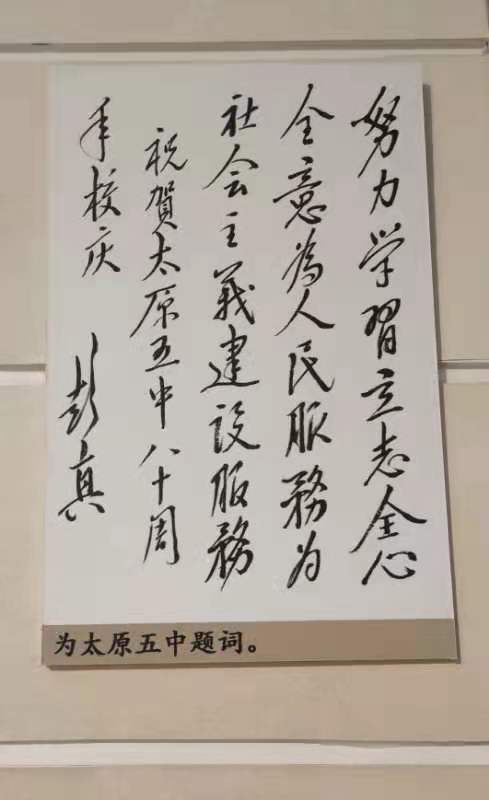 努力学習立志全心
全意為人民服務为
社会主義建設服務
祝賀太原五中八十周
年校庆
彭真
为太原五中题词。